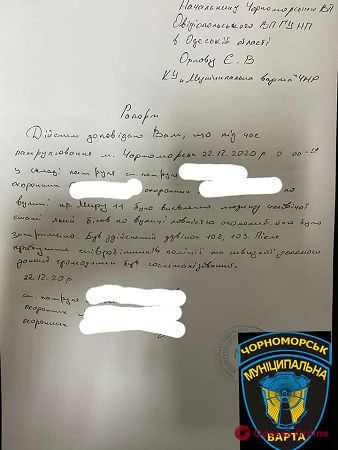 Начальнику Чорноморського ВП
Овідіопольського ВП ГУ НП
в Одеській області
Орлову Є. В
КУ „Муніципальна варта" ЧМР
Рапорт
Дійсним доповідаю Вам, що під час
патрулювання м. Чорноморськ 22.12.2020 р о 00
у складі патруля ст. патруля
охоронник охоронник по
вулиці пр. Миру 11 було виявлено людину чоловічої
статі який бігав по вулиці повністю оголений, його було
затримано. Був здійснений дзвінок 102, 103. Після
прибуття співробітників поліції та швидкої допомоги
даний громадянин був госпіталізований.
22.12.20 р
ст. патруля
охоронник
охоронник
ЧОРНОМОРСЬК
МУНІЦИПАЛЬНА
ВАРТА